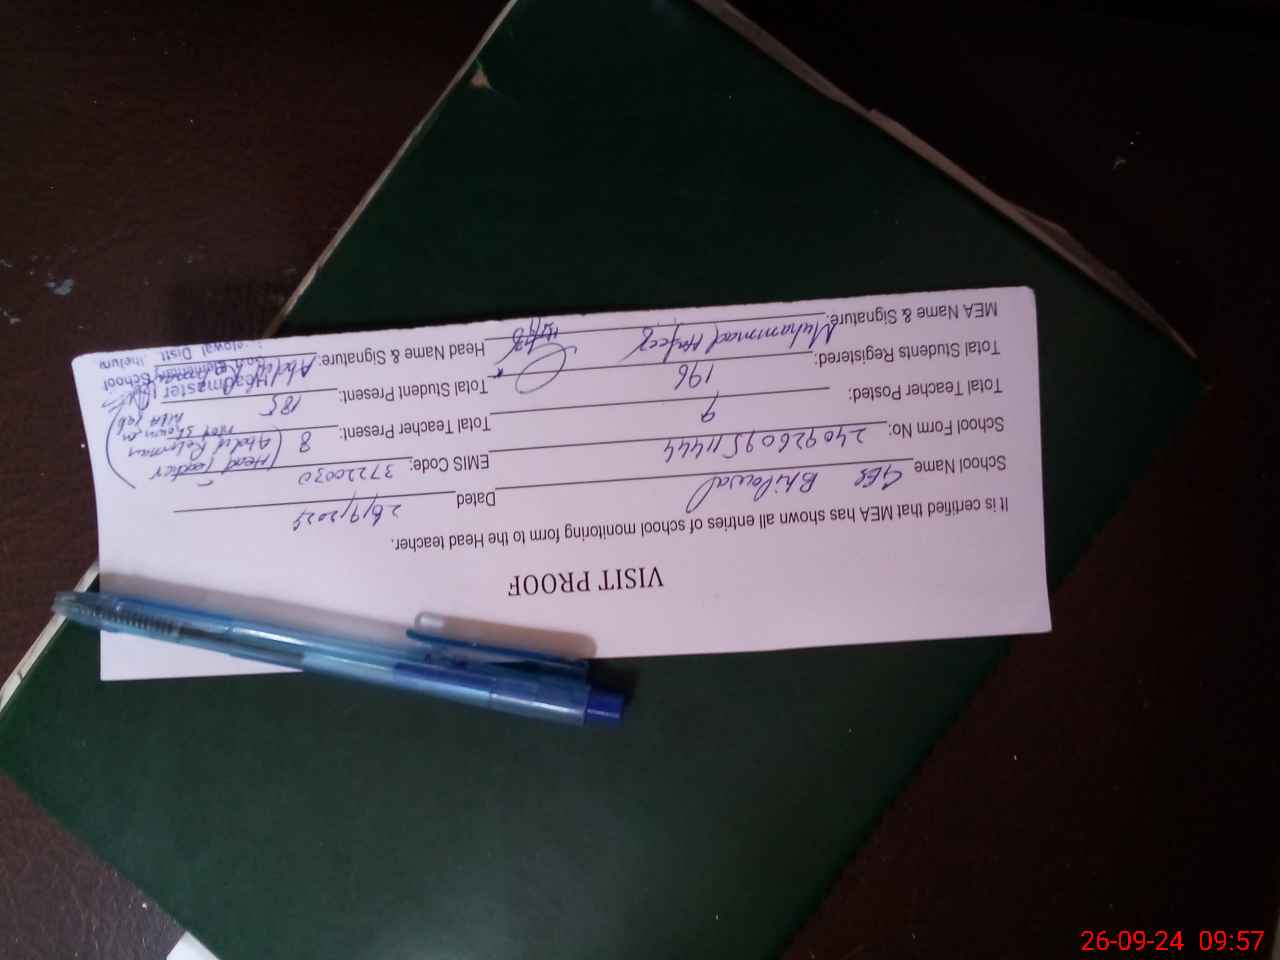 VISIT PROOF
It is certified that MEA has shown all entries of school monitoring form to the Head teacher.
School Name GES Bhilowal Dated 26/9/2024
School Form No: 240926095 11444 EMIS Code: 37220030 (Head Teacher
Total Teacher Posted: 9 Total Teacher Present: 8 (Abdul Rehman
Not Shown on
Total Students Registered: 196 Total Student Present: 185
MEA Name & Signature: Muhammad Hafeez Head Name & Signature: Abdul
Headmaster
Govt. Elementary School
Distt. Jhelum
26-09-24 09:57